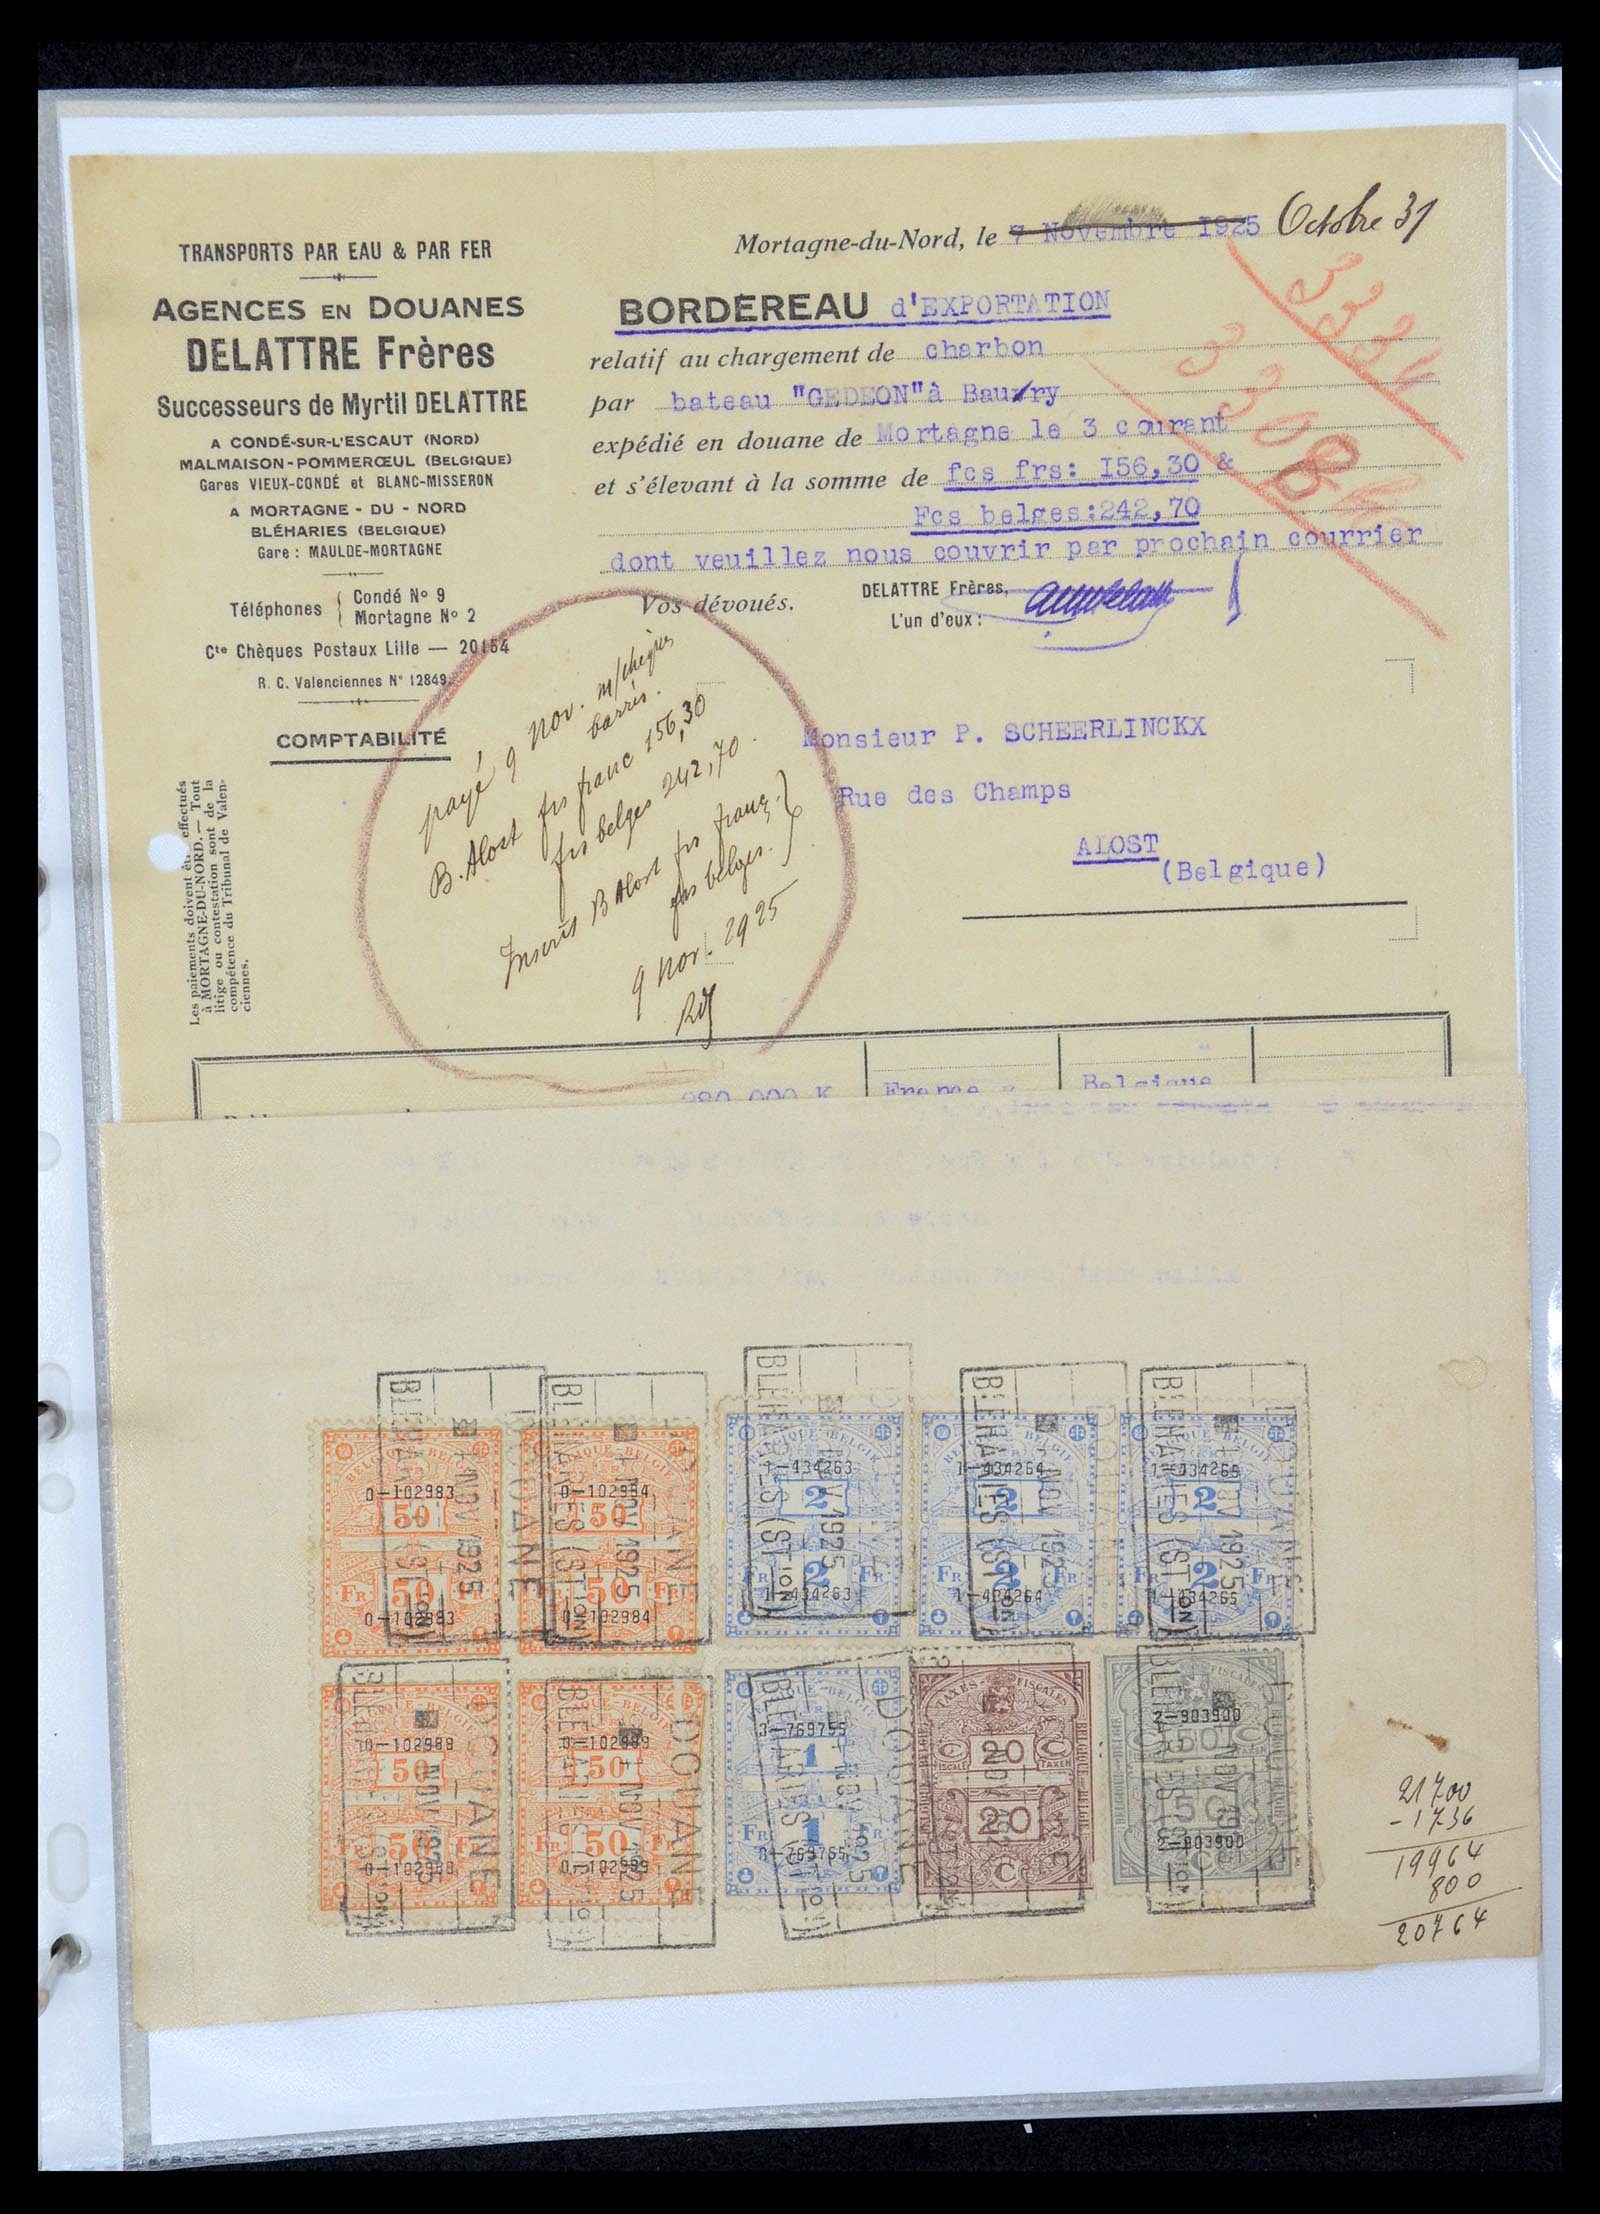 TRANSPORTS PAR EAU & PAR FER
AGENCES EN DOUANES
DELATTRE Frères
Successeurs de Myrtil DELATTRE
A CONDÉ-SUR-L'ESCAUT (NORD)
MALMAISON-POMMERŒUL (BELGIQUE)
Gares VIEUX-CONDÉ et BLANC-MISSERON
A MORTAGNE - DU - NORD
BLÉHARIES (BELGIQUE)
Gare : MAULDE-MORTAGNE
Téléphones { Condé No 9
Mortagne No 2
Cte Chèques Postaux Lille — 20154
R. C. Valenciennes N° 12849
COMPTABILITÉ
Les paiements doivent être effectués
à MORTAGNE-DU-NORD. — Tout
litige ou contestation sont de la
compétence du Tribunal de Valen-
ciennes.
Mortagne-du-Nord, le 7 Novembre 1925 Octobre 31
BORDEREAU d'EXPORTATION
relatif au chargement de charbon
par bateau "GEDEON" à Bauxry
expédié en douane de Mortagne le 3 courant
et s'élevant à la somme de fcs frs: I56,30 &
Fcs belges:242,70
dont veuillez nous couvrir par prochain courrier
Vos dévoués.
DELATTRE Frères,
L'un d'eux :
3334
3308
Monsieur P. SCHEERLINCKX
Rue des Champs
ALOST
(Belgique)
payé 9 Nov. m/chèques
barrés.
B. Alost frs franc 156,30
frs belges 242,70.
Inscrits B Alost frs franç.
frs belges.
9 Nov. 1925
280.000 K
France
Belgique
BELGIQUE-BELGIE
0-102983
50
FR 50
0-102983
BELGIQUE-BELGIE
0-102984
50
50 FR
0-102984
BELGIQUE-BELGIE
1-434263
2
FR 2 FR
1-434263
BELGIQUE-BELGIE
1-434264
2
FR 2 FR
1-434264
BELGIQUE-BELGIE
1-434265
2
FR 2 FR
1-434265
DOUANE
NOV 1925
BLEHARIES (STION)
BELGIQUE-BELGIE
0-102988
50
50 FR
0-102988
BELGIQUE-BELGIE
0-102989
50
FR 50 FR
0-102989
BELGIQUE-BELGIE
3-769755
1
FR 1 FR
3-769755
TAXES FISCALES
C 20 C
FISCALE TAXEN
20
C
FISCALES
2-903900
50
TAXEN
50
2-903900
C
21700
-1736
19964
800
20764